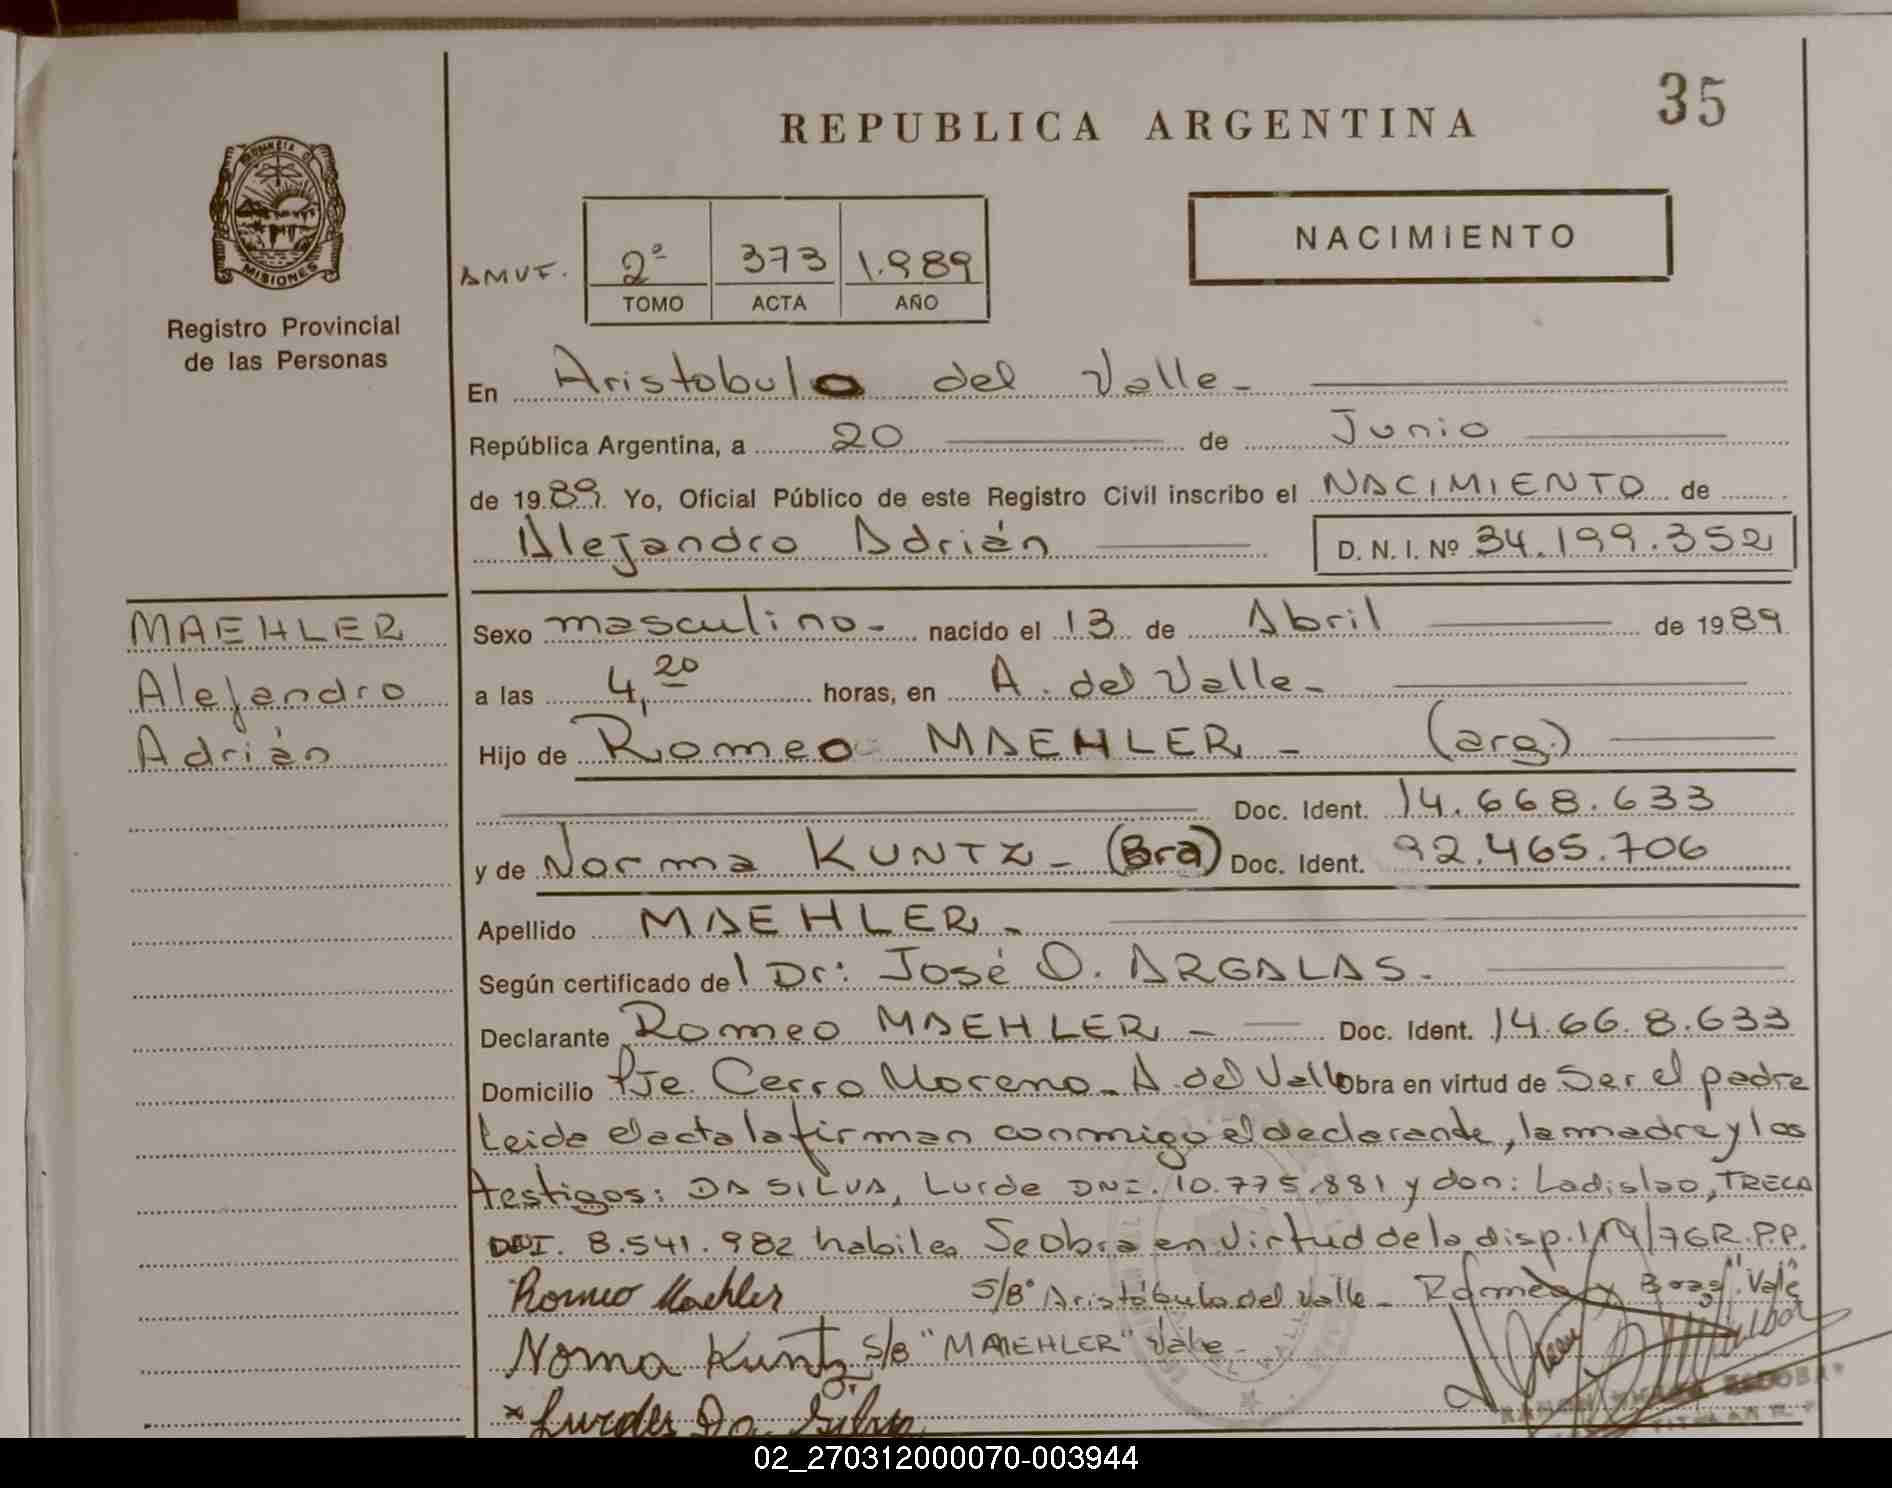 35
REPUBLICA ARGENTINA
PROVINCIA DE
MISIONES
Registro Provincial
de las Personas
NACIMIENTO
AMVF. 2ª 373 1.989
TOMO ACTA AÑO
En Aristobulo del Valle.-
República Argentina, a 20 de Junio
de 1989. Yo, Oficial Público de este Registro Civil inscribo el NACIMIENTO de
Alejandro Adrián D. N. I. Nº 34.199.352
MAEHLER
Alejandro
Adrián
Sexo masculino.- nacido el 13 de Abril de 1989
a las 4,20 horas, en A. del Valle.-
Hijo de Romeo MAEHLER.- (arg.)
Doc. Ident. 14.668.633
y de Norma KUNTZ.- (Bra) Doc. Ident. 92.465.706
Apellido MAEHLER.-
Según certificado del Dr: José O. ARGALAS.-
Declarante Romeo MAEHLER.- Doc. Ident. 14.66.8.633
Domicilio Pje. Cerro Moreno.- A. del Valle Obra en virtud de Ser el padre
Leida el acta la firman conmigo el declarante, la madre y los
testigos: DA SILVA, Lurde DNI. 10.775.881 y don: Ladislao, TRECA
DNI. 8.541.982 habiles Se obra en virtud de la disp. 1/19/76 R.P.P.
Romeo Maehler S/Bº Aristóbulo del Valle.- Romeo y Bra "Vale
Norma Kuntz S/B "MAEHLER" Vale.-
Lurdes Da Silva
02_270312000070-003944